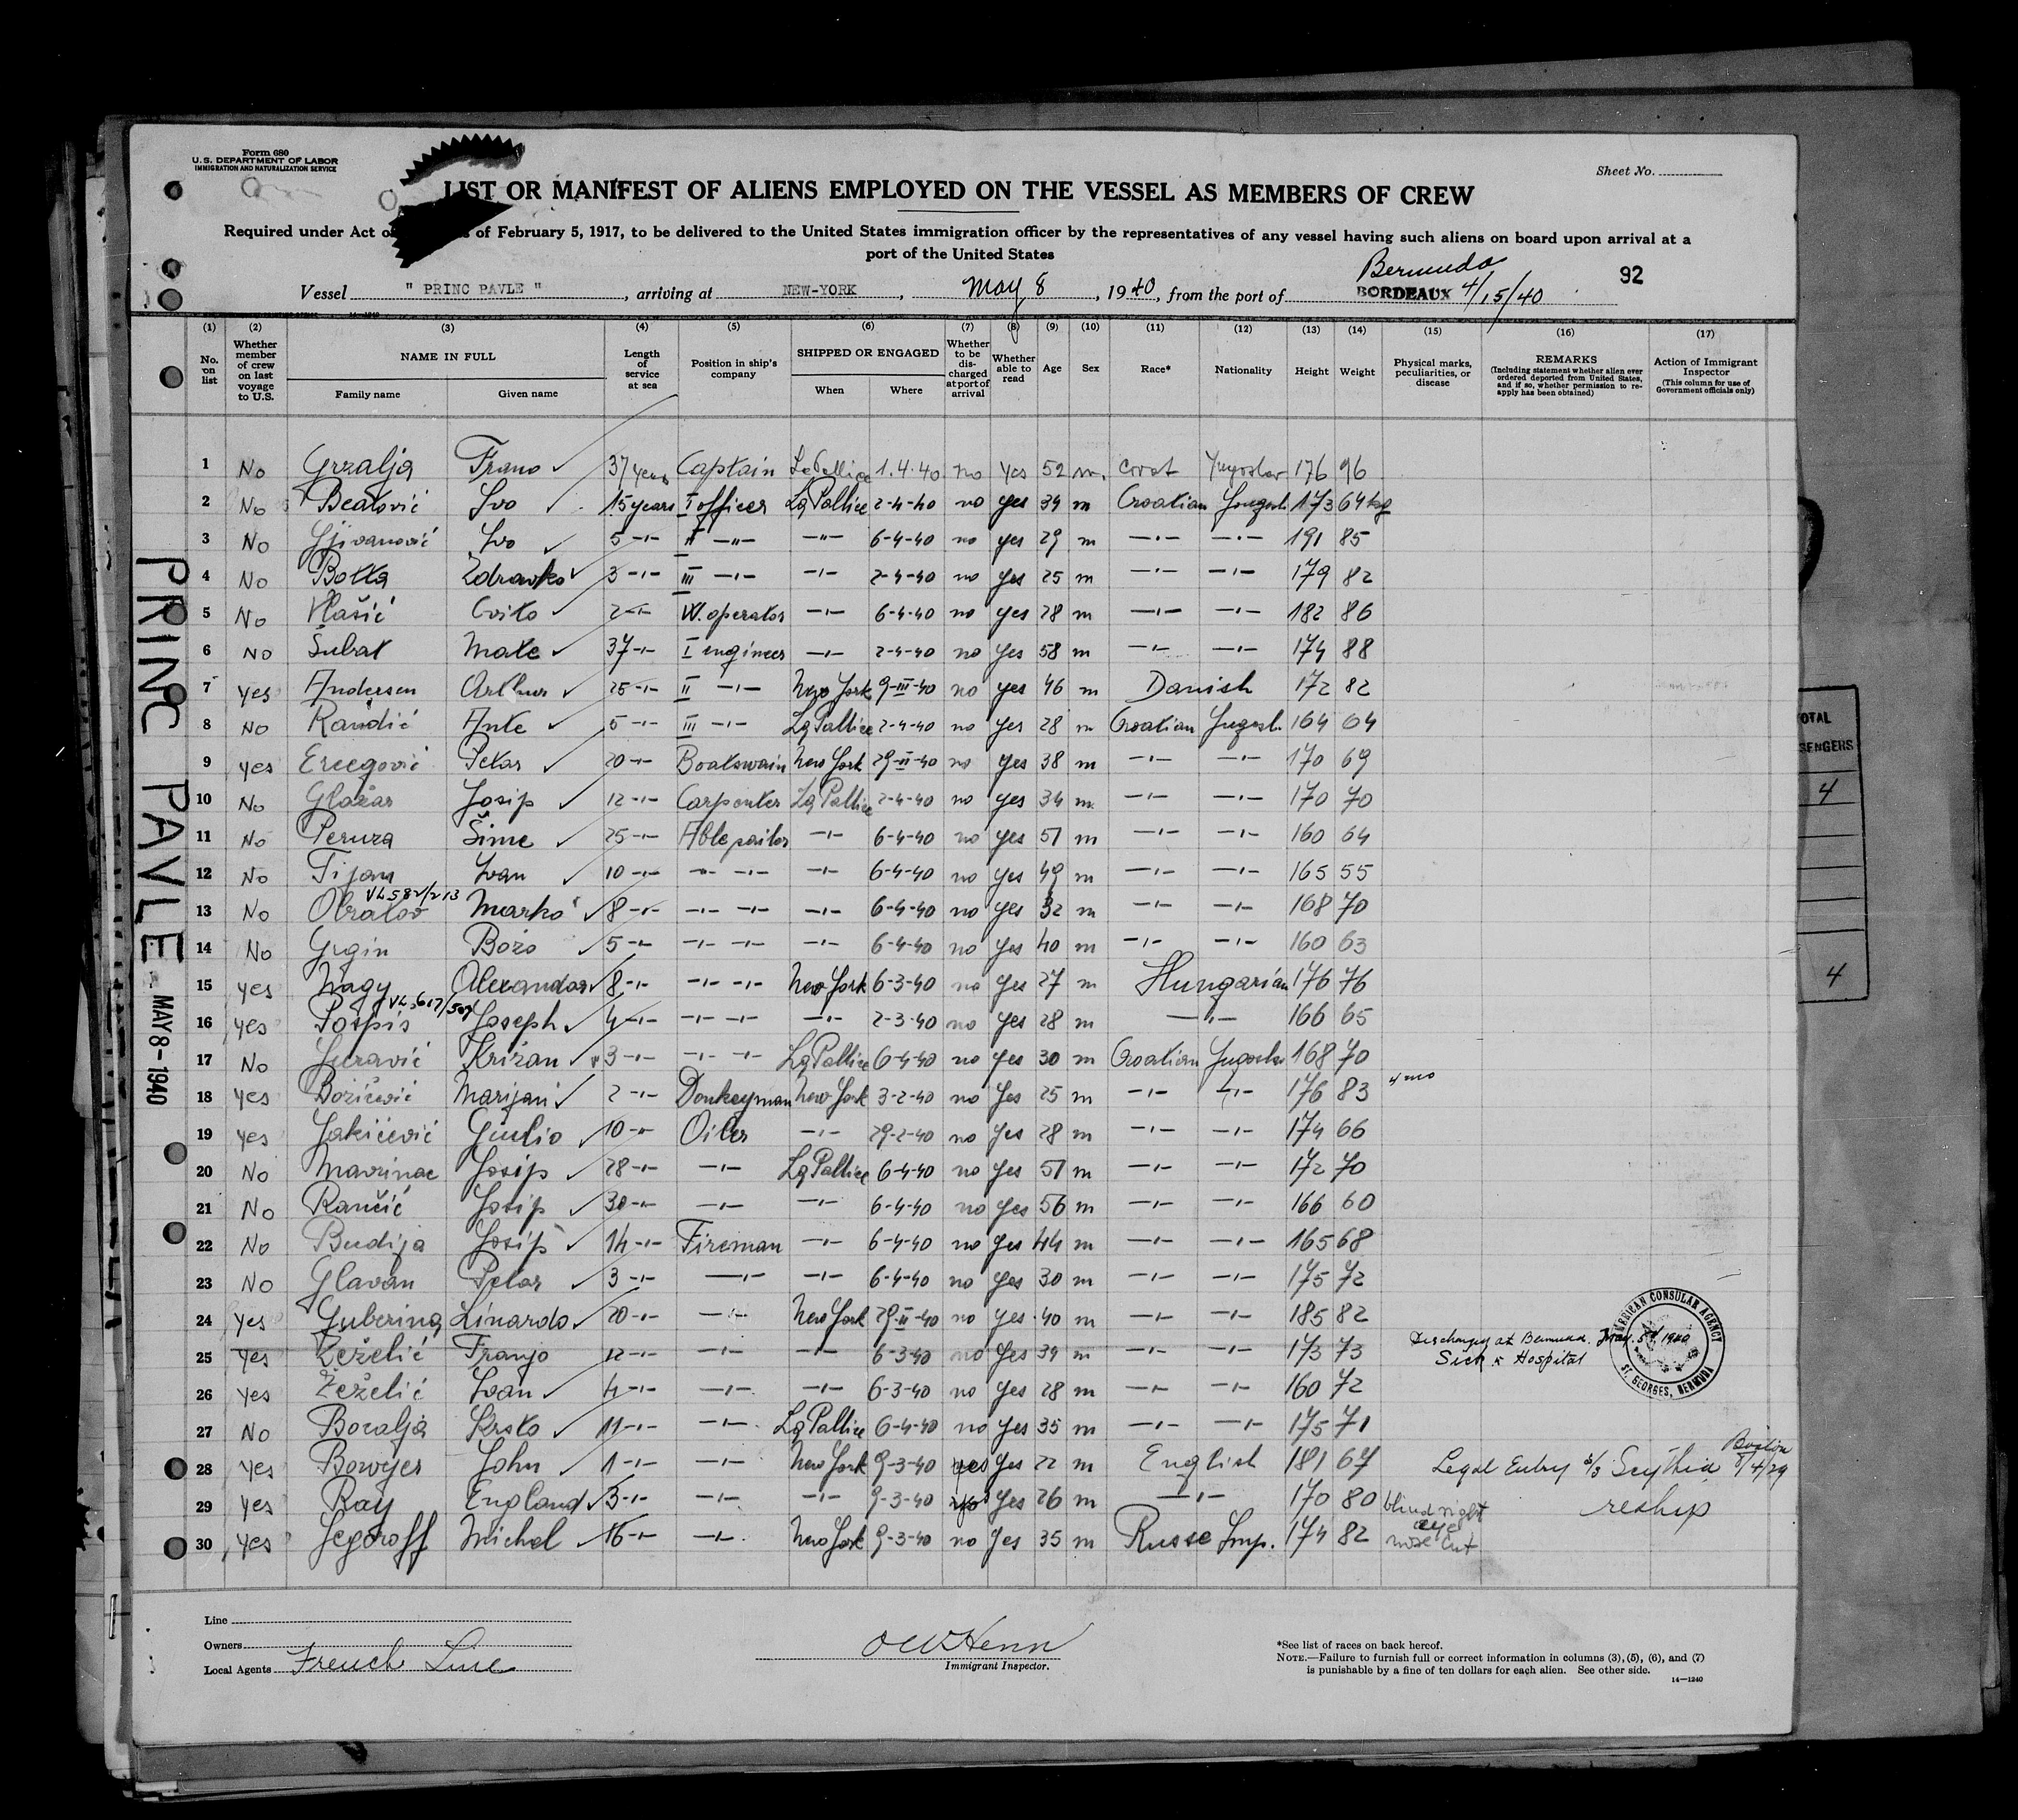 Form 680
U. S. DEPARTMENT OF LABOR
IMMIGRATION AND NATURALIZATION SERVICE
Sheet No.
LIST OR MANIFEST OF ALIENS EMPLOYED ON THE VESSEL AS MEMBERS OF CREW
Required under Act of February 5, 1917, to be delivered to the United States immigration officer by the representatives of any vessel having such aliens on board upon arrival at a
port of the United States
Bermuda
92
Vessel " PRINC PAVLE ", arriving at NEW-YORK, May 8, 1940, from the port of BORDEAUX 4/15/40
(1) (2) (3) (4) (5) (6) (7) (8) (9) (10) (11) (12) (13) (14) (15) (16) (17)
No. on list
Whether member of crew on last voyage to U.S.
NAME IN FULL
Family name Given name
Length of service at sea
Position in ship's company
SHIPPED OR ENGAGED
When Where
Whether to be discharged at port of arrival
Whether able to read
Age
Sex
Race*
Nationality
Height
Weight
Physical marks, peculiarities, or disease
REMARKS
(Including statement whether alien ever ordered deported from United States, and if so, whether permission to reapply has been obtained)
Action of Immigrant Inspector
(This column for use of Government officials only)
1 No Grzalja Frano 37 years Captain La Pallice 1.4.40 no yes 52 m. Croat Yugoslav 176 96
2 No Beatović Ivo 15 years I officer La Pallice 2-4-40 no yes 34 m Croatian Jugosl. 173 64 kg
3 No Gjivanović Ivo 5 -"- II -"- -"- 6-4-40 no yes 29 m -"- -"- 191 85
4 No Botka Zdravko 3 -"- III -"- -"- 2-4-40 no yes 25 m -"- -"- 179 82
5 No Vlašić Cvito 2 -"- W. operator -"- 6-4-40 no yes 28 m -"- -"- 182 86
6 No Šubat Mate 37 -"- I engineer -"- 2-4-40 no yes 58 m -"- -"- 174 88
7 yes Andersen Arthur 25 -"- II -"- New York 9-III-40 no yes 46 m Danish 172 82
8 No Randić Ante 5 -"- III -"- La Pallice 2-4-40 no yes 28 m Croatian Jugosl. 164 64
9 yes Ercegović Petar 20 -"- Boatswain New York 29-II-40 no yes 38 m -"- -"- 170 69
10 No Glažar Josip 12 -"- Carpenter La Pallice 2-4-40 no yes 34 m -"- -"- 170 70
11 No Peruza Šime 25 -"- Able sailor -"- 6-4-40 no yes 51 m -"- -"- 160 64
12 No Tijan Ivan 10 -"- -"- -"- -"- 6-4-40 no yes 49 m -"- -"- 165 55
VL 582/213
13 No Obratov Marko 8 -"- -"- -"- -"- 6-4-40 no yes 32 m -"- -"- 168 70
14 No Grgin Božo 5 -"- -"- -"- -"- 6-4-40 no yes 40 m -"- -"- 160 63
15 yes Nagy Alexandar 8 -"- -"- -"- New York 6-3-40 no yes 27 m Hungarian 176 76
16 yes Pospis Joseph 4 -"- -"- -"- -"- 2-3-40 no yes 28 m -"- 166 65
17 No Juravić Križan 3 -"- -"- -"- La Pallice 6-4-40 no yes 30 m Croatian Jugosl. 168 70
18 yes Božičević Marijan 2 -"- Donkeyman New York 3-2-40 no yes 25 m -"- -"- 176 83
19 yes Jakićević Giulio 10 -"- Oiler -"- 29-2-40 no yes 28 m -"- -"- 174 66
20 No Mavrinac Josip 28 -"- -"- La Pallice 6-4-40 no yes 51 m -"- -"- 172 70
21 No Rančić Josip 30 -"- -"- -"- 6-4-40 no yes 56 m -"- -"- 166 60
22 No Budija Josip 14 -"- Fireman -"- 6-4-40 no yes 44 m -"- -"- 165 68
23 No Glavan Petar 3 -"- -"- -"- 6-4-40 no yes 30 m -"- -"- 175 72
24 yes Guberina Linardo 20 -"- -"- New York 29-II-40 no yes 40 m -"- -"- 185 82
25 yes Žeželić Franjo 12 -"- -"- -"- 6-3-40 no yes 39 m -"- -"- 173 73 Discharged at Bermuda. May 5th 1940
Sick & Hospital
AMERICAN CONSULAR AGENCY
ST. GEORGES, BERMUDA
26 yes Žeželić Ivan 4 -"- -"- -"- 6-3-40 no yes 28 m -"- -"- 160 72
27 No Boralja Krsto 11 -"- -"- La Pallice 6-4-40 no yes 35 m -"- -"- 175 71
28 yes Bowyer John 1 -"- -"- New York 9-3-40 yes yes 22 m English 181 67 Legal Entry s/s Scythia Boston
29 yes Ray England 3 -"- -"- -"- 9-3-40 yes 26 m -"- 170 80 blind right eye reship
30 yes Jegoroff Michel 16 -"- -"- New York 9-3-40 no yes 35 m Russe Imp. 174 82 nose cut
PRINC PAVLE
MAY 8-1940
TOTAL
4
4
Line
Owners
Local Agents French Line
Immigrant Inspector.
*See list of races on back hereof.
NOTE.—Failure to furnish full or correct information in columns (3), (5), (6), and (7)
is punishable by a fine of ten dollars for each alien. See other side.
14—1240